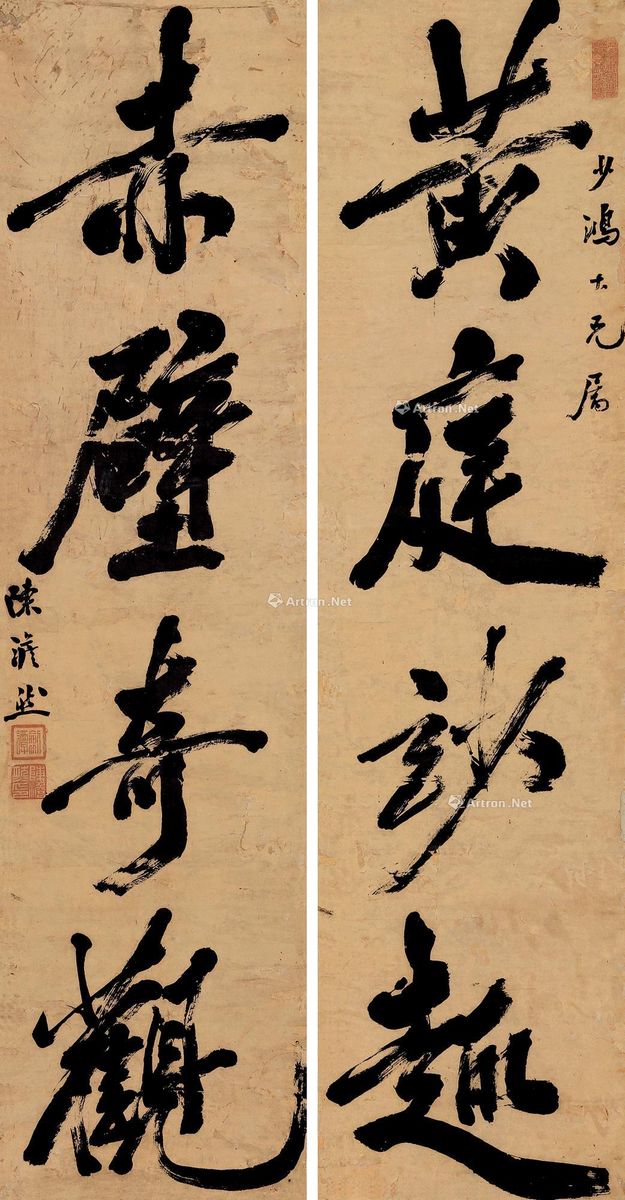 黄庭妙趣
少鴻大兄屬
赤壁奇觀
陳澹然
Artron.Net
Artron.Net
Artron.Net